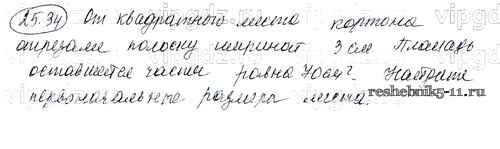 25.34 От квадратного листа картона
отрезали полоску шириной 3 см Площадь
оставшейся части равна 70 см². Найдите
первоначальные размеры листа.
reshebnik5-11.ru